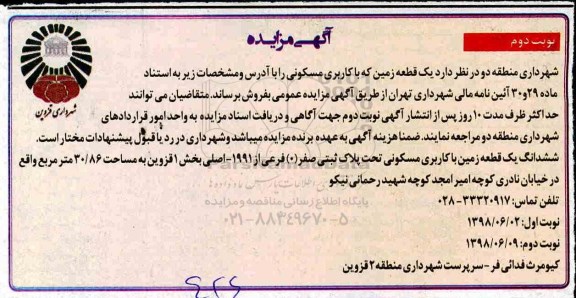 آگهی مزایده
نوبت دوم
شهرداری قزوین
شهرداری منطقه دو در نظر دارد یک قطعه زمین که با کاربری مسکونی را با آدرس ومشخصات زیر به استناد
ماده ۲۹و۳۰ آئین نامه مالی شهرداری تهران از طریق آگهی مزایده عمومی بفروش برساند. متقاضیان می توانند
حداکثر ظرف مدت ۱۰ روز پس از انتشار آگهی نوبت دوم جهت آگاهی و دریافت اسناد مزایده به واحد امور قراردادهای
شهرداری منطقه دو مراجعه نمایند. ضمنا هزینه آگهی به عهده برنده مزایده میباشد وشهرداری در رد یا قبول پیشنهادات مختار است.
ششدانگ یک قطعه زمین با کاربری مسکونی تحت پلاک ثبتی صفر(۰) فرعی از ۱۹۹۱-اصلی بخش ۱ قزوین به مساحت ۳۰/۸۶ متر مربع واقع
در خیابان نادری کوچه امیر امجد کوچه شهید رحمانی نیکو
تلفن تماس: ۳۳۳۲۰۹۱۷-۰۲۸
نوبت اول: ۱۳۹۸/۰۶/۰۲
نوبت دوم: ۱۳۹۸/۰۶/۰۹
کیومرث فدائی فر-سرپرست شهرداری منطقه ۲ قزوین
پایگاه اطلاع رسانی مناقصه و مزایده
۰۲۱-۸۸۳۴۹۶۷۰-۵